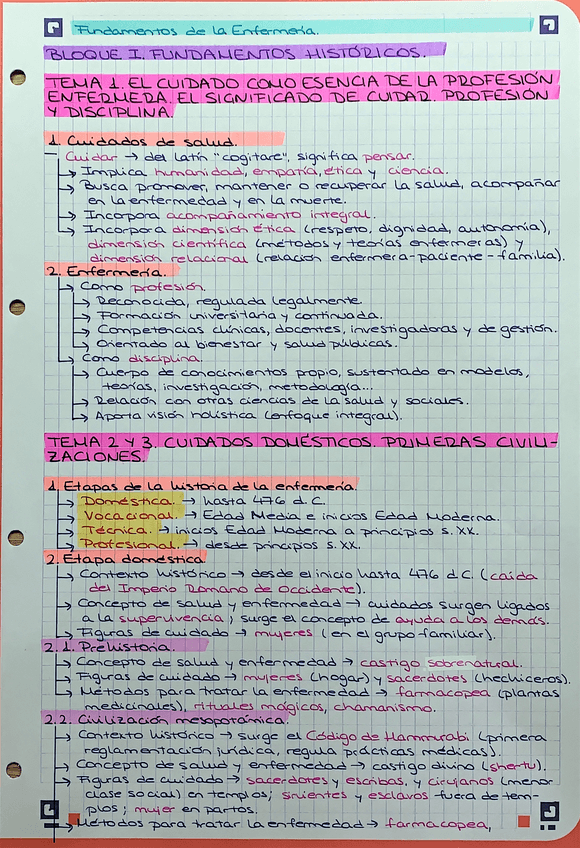 Fundamentos de la Enfermería.
BLOQUE I. FUNDAMENTOS HISTÓRICOS.
TEMA 1. EL CUIDADO COMO ESENCIA DE LA PROFESIÓN
ENFERMERA. EL SIGNIFICADO DE CUIDAR. PROFESIÓN
Y DISCIPLINA.
1. Cuidados de salud.
Cuidar → del latín "cogitare", significa pensar.
↳ Implica humanidad, empatía, ética y ciencia.
↳ Busca promover, mantener o recuperar la salud, acompañar
en la enfermedad y en la muerte.
↳ Incorpora acompañamiento integral.
↳ Incorpora dimensión ética (respeto, dignidad, autonomía),
dimensión científica (métodos y teorías enfermeras) y
dimensión relacional (relación enfermera-paciente-familia).
2. Enfermería.
↳ Como profesión.
↳ Reconocida, regulada legalmente.
↳ Formación universitaria y continuada.
↳ Competencias clínicas, docentes, investigadoras y de gestión.
↳ Orientado al bienestar y salud públicas.
↳ Como disciplina.
↳ Cuerpo de conocimientos propio, sustentado en modelos,
teorías, investigación, metodología...
↳ Relación con otras ciencias de la salud y sociales.
↳ Aporta visión holística (enfoque integral).
TEMA 2 Y 3. CUIDADOS DOMÉSTICOS. PRIMERAS CIVILI-
ZACIONES.
1. Etapas de la historia de la enfermería.
↳ Doméstica. → hasta 476 d.C.
↳ Vocacional. → Edad Media e inicios Edad Moderna.
↳ Técnica. → inicios Edad Moderna a principios s. XX.
↳ Profesional. → desde principios s. XX.
2. Etapa doméstica
↳ Contexto histórico → desde el inicio hasta 476 d.C. (caída
del Imperio Romano de Occidente).
↳ Concepto de salud y enfermedad → cuidados surgen ligados
a la supervivencia; surge el concepto de ayuda a los demás.
↳ Figuras de cuidado → mujeres (en el grupo familiar).
2.1. Prehistoria.
↳ Concepto de salud y enfermedad → castigo sobrenatural.
↳ Figuras de cuidado → mujeres (hogar) y sacerdotes (hechiceros).
↳ Métodos para tratar la enfermedad → farmacopea (plantas
medicinales), rituales mágicos, chamanismo.
2.2. Civilización mesopotámica
↳ Contexto histórico → surge el Código de Hammurabi (primera
reglamentación jurídica, regula prácticas médicas).
↳ Concepto de salud y enfermedad → castigo divino (shertu).
↳ Figuras de cuidado → sacerdotes y escribas, y cirujanos (menor
clase social) en templos; sirvientes y esclavos fuera de tem-
plos; mujer en partos.
↳ Métodos para tratar la enfermedad → farmacopea,